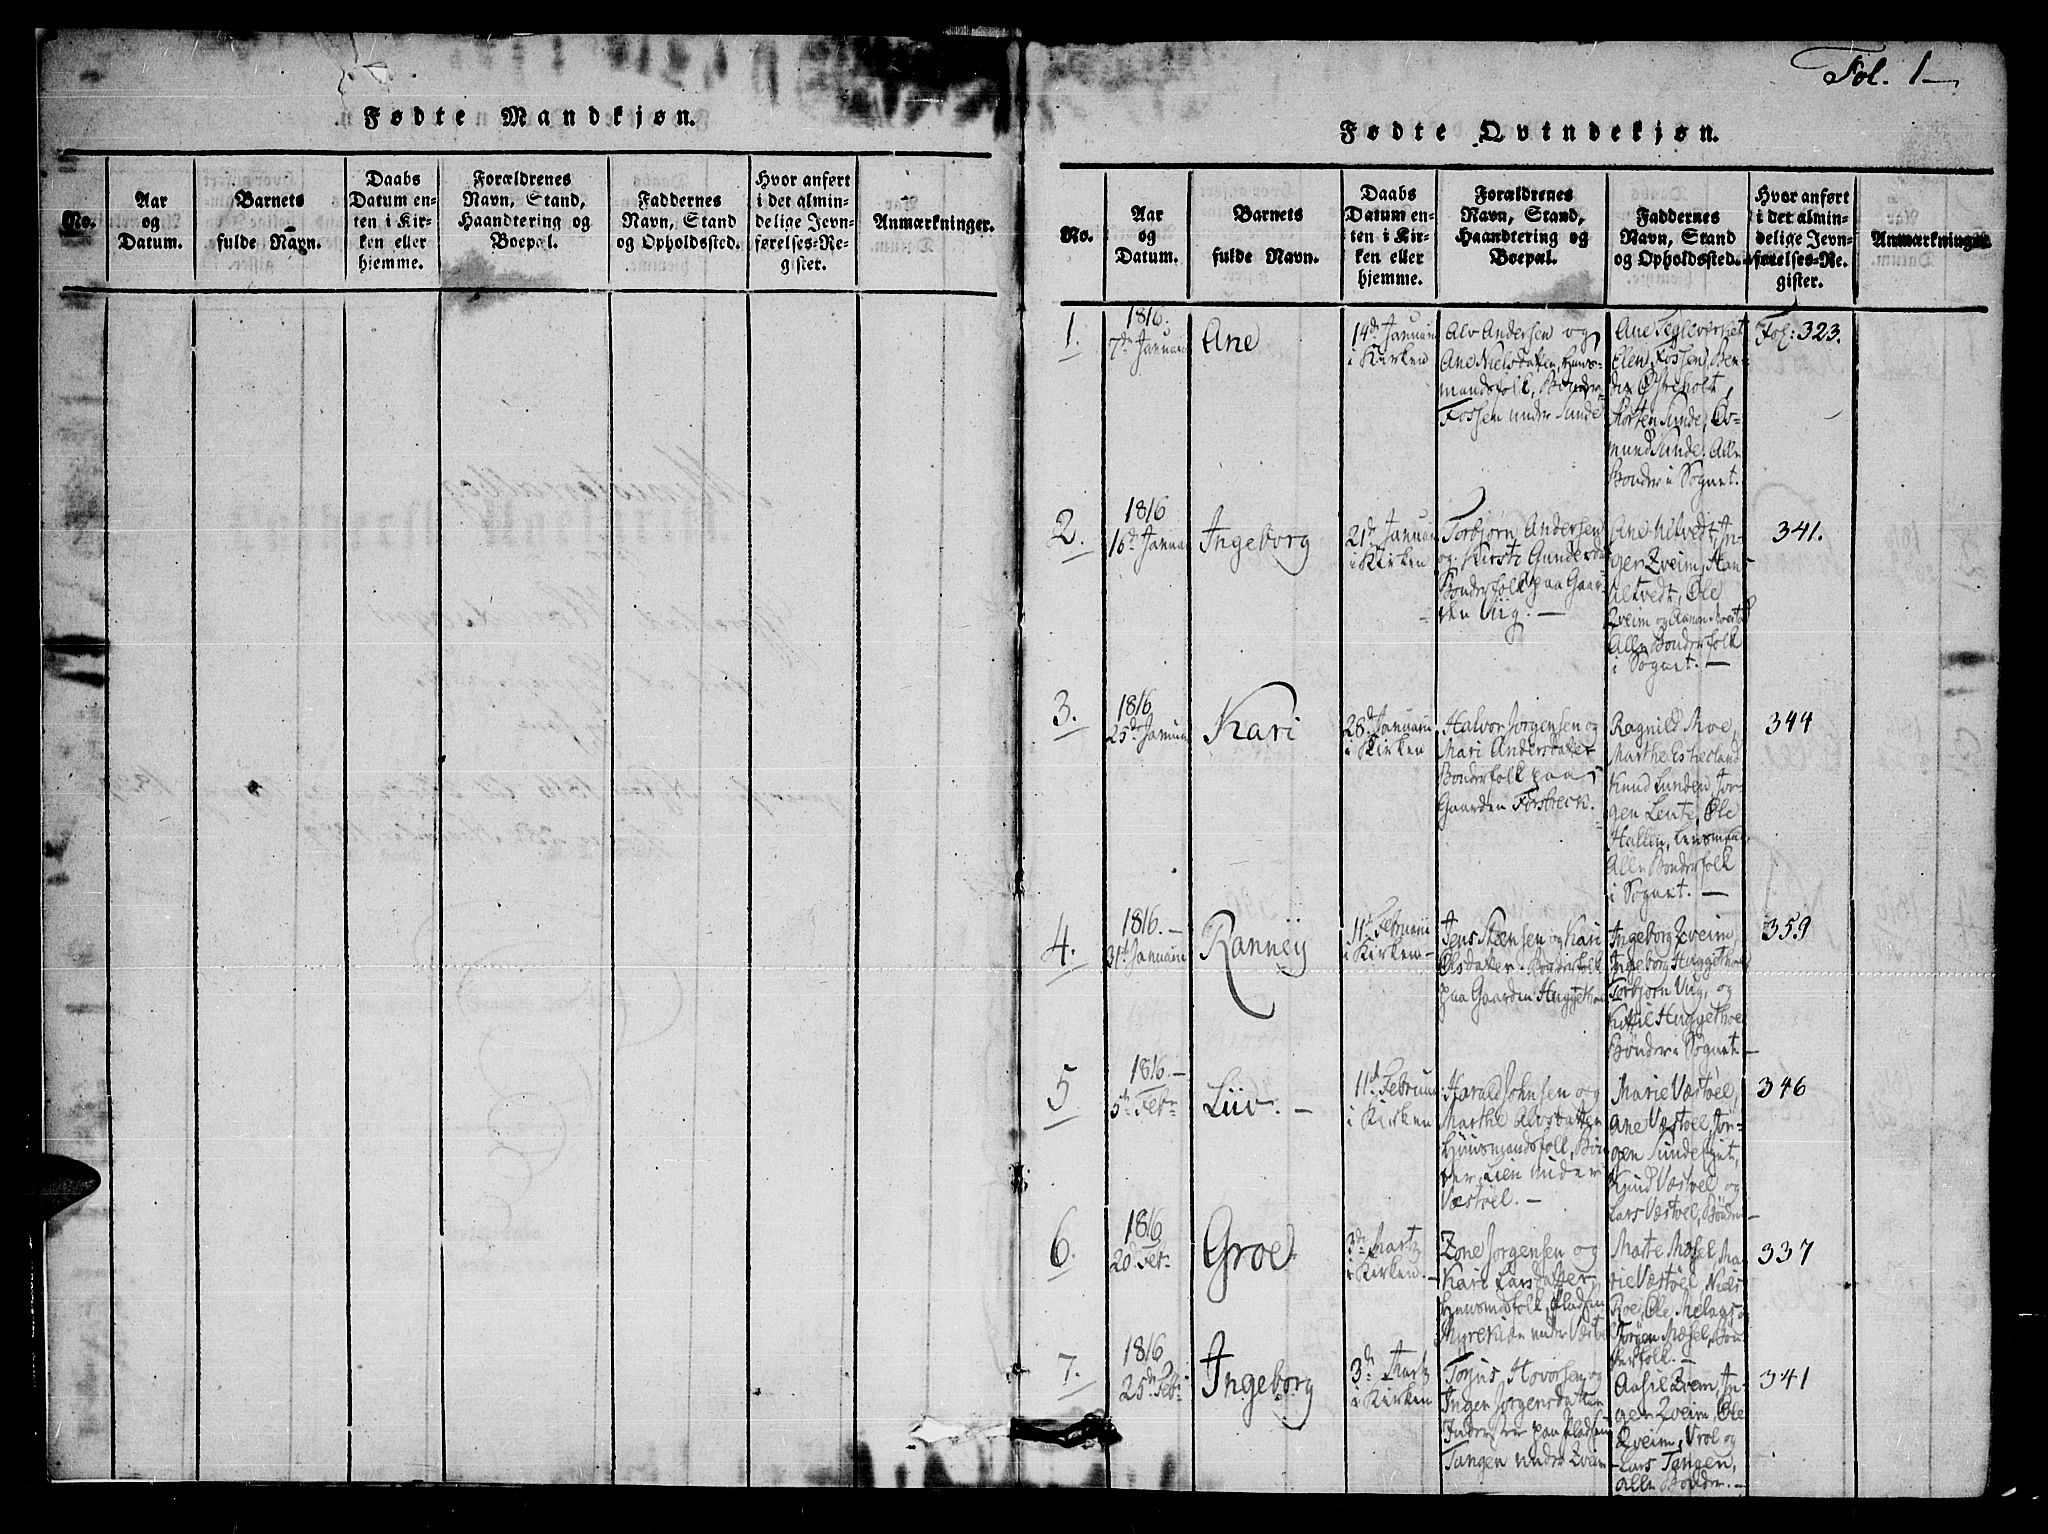 Fol. 1
Fødte Mandkjøn.
No.
Aar
og
Datum.
Barnets
fulde Navn.
Daabs
Datum en-
ten i Kir-
ken eller
hjemme.
Forældrenes
Navn, Stand,
Haandtering og
Boepæl.
Faddernes
Navn, Stand
og Opholdssted.
Hvor anført
i det almin-
delige Jevn-
førelses-Re-
gister.
Anmærkninger.
Fødte Qvindekjøn.
No.
Aar
og
Datum.
Barnets
fulde Navn.
Daabs
Datum en-
ten i Kir-
ken eller
hjemme.
Forældrenes
Navn, Stand,
Haandtering og
Boepæl.
Faddernes
Navn, Stand
og Opholdssted.
Hvor anført
i det almin-
delige Jevn-
førelses-Re-
gister.
Anmærkninger.
1.
1816.
7de Januari
Ane
14de Januari
i Kirken
Alv Andersen og
Ane Nielsdatter, Huus-
mandsfolk, Bønder
Fossen under Sunde
Ane Tegleverket
Elen Fossen,
Østeholt,
Morten Sunde, Os-
mund Sunde. Alle
Bønder i Sognet.
Fol: 323.
2.
1816
16de Januar
Ingeborg
21de Januari
i Kirken
Torbjørn Andersen
og Kirsti Gunders
Bonderfolk paa Gaar-
den Viig. —
Ane Ultvedt, In-
ger Zveim, Hans
Ultvedt, Ole
Zveim og
Alle Bonderfolk
i Sognet. —
341.
3.
1816
25de Januar
Kari
28de Januari
i Kirken
Halvor Jorgensen og
Mari Andersdatter
Bonderfolk paa
Gaarden Forsbeck.
Ragnild Moe,
Marthe Estieland
Knud Lunden, Jor-
gen Lente, Ole
Hallen, Lensmand
Alle Bonderfolk
i Sognet. —
344
4.
1816. —
31te Januari
Ranney
11te Februari
i Kirken —
Jens Steensen og Kari
Olsdatter. Bonderfolk
paa Gaarden Huggethoe
Ingeborg Zveim,
Ingeborg Huggethoe
Torbjørn Viig, og
Kittil Huggethoe
Bønder i Sognet —
359
5
1816. —
5te Febr
Liiv. —
11te Februari
i Kirken
Harald Johnsen og
Marthe Alvsdatter
Huusmandsfolk, Bøn
der under
Væstøel. —
Marie Væstøel,
Ane Væstøel, Jør-
gen Sundeslyut,
Knud Væstøel og
Lars Væstøel, Bønder —
346
6.
1816
20de Febr
Groe
3de Martz
i Kirken. —
Zone Jorgensen og
Kari Larsdatter
Huusmdsfolk, Pladsen
Myrekiær under Væstø
Marte Møsel, Ma-
rie Væstøel, Niels
Roe, Ole Melaas
Jørgen Mæsel, Bøn
derfolk. —
337
7.
1816
25de Febr
Ingeborg
3de Martz
i Kirken
Torjus Hovorsen og
Inger Jorgensdatter
Inderster paa Pladsen
Tangen under Zveim
Aasil Zveim, In-
ger Zveim, Ole
Zveim, Vroe og
Lars Tangen,
alle Bønder. —
341